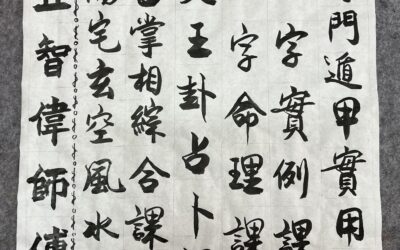 門遁甲實用
字實例課
字命理課
王卦占卜
掌相綜合課
宅玄空風水
智偉師傅